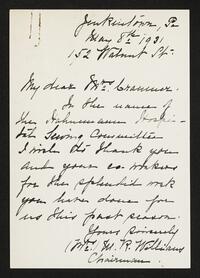 Jenkintown, Pa
May 8th, 1931
152 Walnut St.
My dear Mrs. Crammer.
In the name of
the Hahnemann Hospi-
tal Sewing Committee
I wish to thank you
and your co-workers
for the splendid work
you have done for
us this past season.
Yours sincerely
(Mrs. M. R.
Chairman.